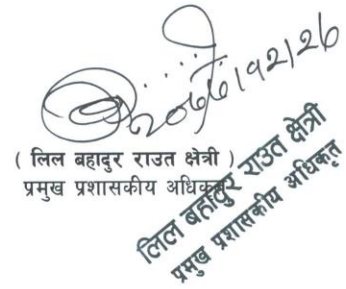 ( लिल बहादुर राउत क्षेत्री )
प्रमुख प्रशासकीय अधिकृत
लिल बहादुर राउत क्षेत्री
प्रमुख प्रशासकीय अधिकृत